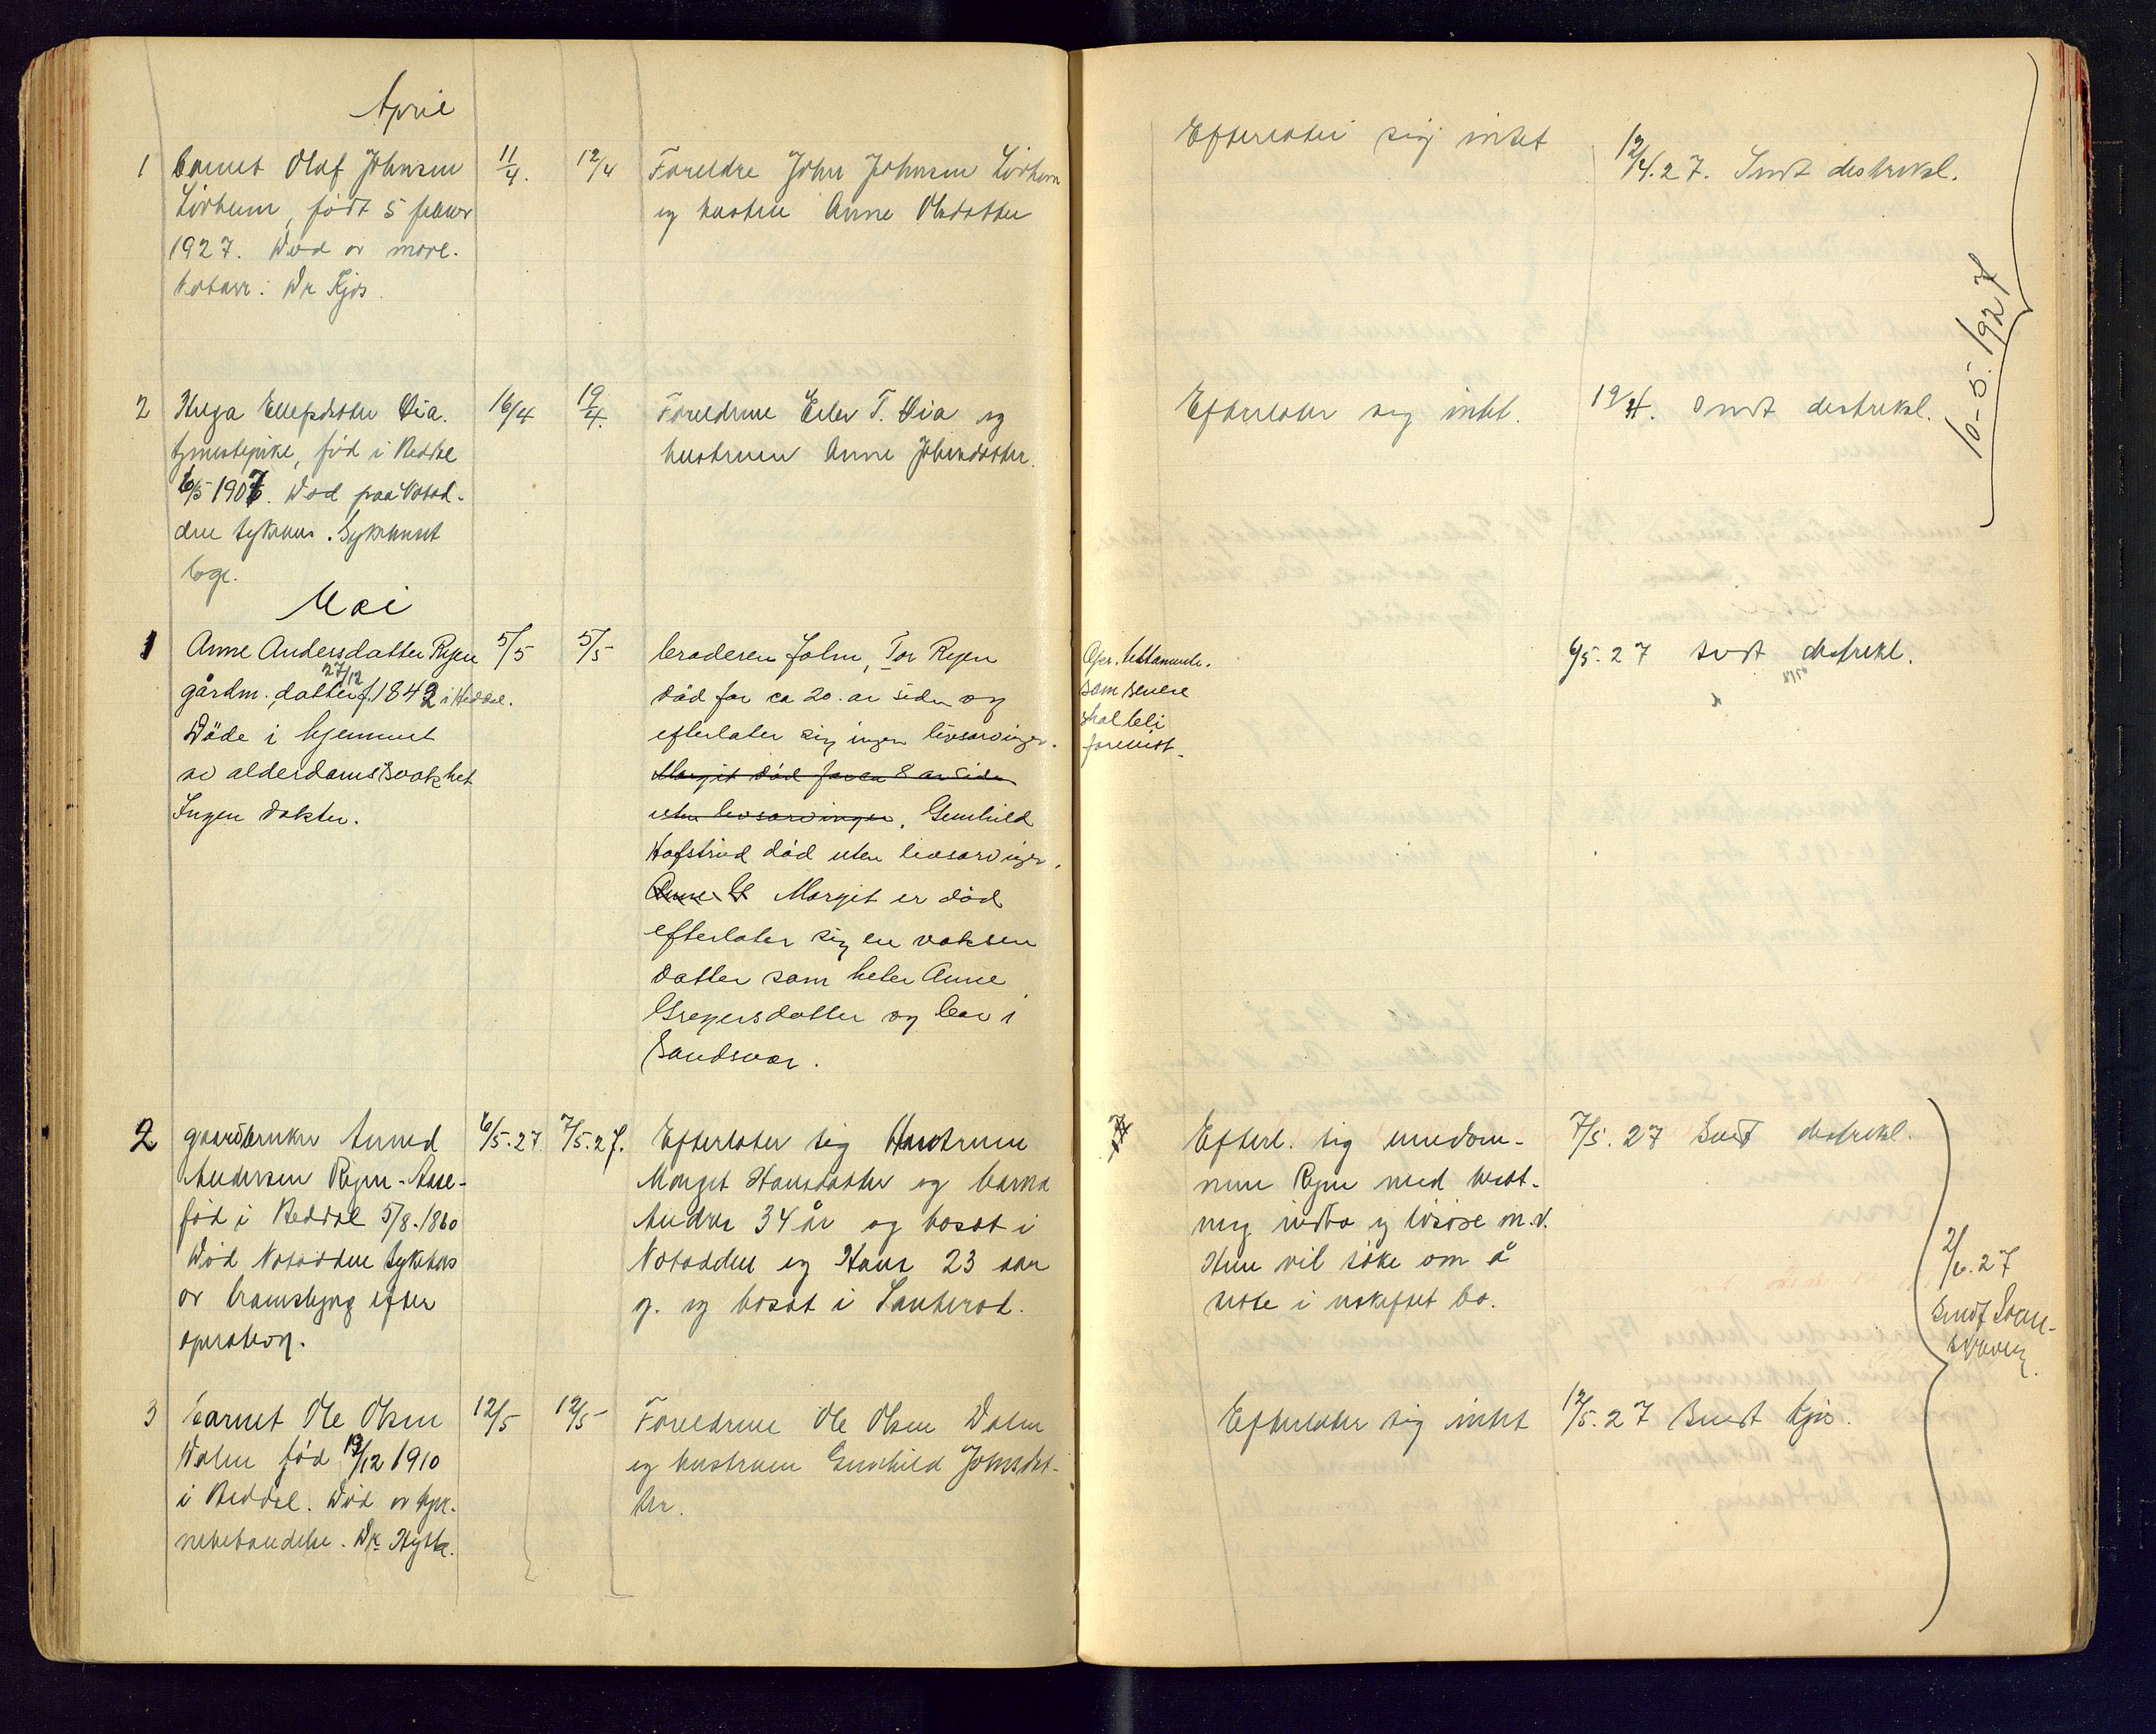 April
1 barnet Olaf Johnsen
født 5 februar
1927. Død av
Dr Kjos.
11/4.
12/4
Foreldre John Johnsen
og hustru Anne Olsdatter
Efterlater sig intet
12/4.27. Sendt distriktsl.
2 Ellefsdatter Lia.
tjenestepike, fød i Heddal
6/5 1907. Død paa Notod-
den sykehus. Sykehuset
læge.
16/4
19/4.
Foreldrene T. Lia og
hustruen Anne Johnsdatter.
Efterlater sig intet.
19/4. Sendt distriktsl.
10-5. 1927
Mai
1 Anne Andersdatter Rejen
gårdm. datter f. 27/12 1842 i Heddal.
Døde i hjemmet
av alderdomssvakhet
Ingen doktor.
5/5
5/5
broderen John, Tor Rejen
død for ca 20. år siden og
efterlater sig ingen livsarvinger.
Margit død for ca 8 år siden
uten livsarvinger. Gunhild
Hafstad død uten livsarvinger.
Anne G Margit er død
efterlater sig en voksen
datter som heter Anne
Gregersdatter og bor i
Sandsvær.
Opr. testamente.
som senere
skal bli
forevist.
6/5. 27 sendt distriktsl.
2 gaardbruker Amund
Andersen Rejen - Aase-
fød i Heddal 5/8-1860
Død Notodden sykehus
av efter
operation.
6/5.27
7/5.27.
Efterlater sig Hustruen
Margit Hansdatter og barna
Andres 34 år og bosat i
Notodden og Hans 23 aar
g. og bosat i
Efterl. sig eiendom-
men Rejen med besæt-
ning indbo og løsøre m.v.
Hun vil søke om å
sitte i uskiftet bo.
7/5. 27 Sendt distriktsl.
2/6.27
Sendt
3 barnet Ole Olsen
Dalen fød 19/12 1910
i Heddal. Død av
Dr.
12/5
12/5
Foreldrene Ole Olsen Dalen
og hustruen Gunhild Johnsdat-
ter.
Efterlater sig intet
12/5.27 Sendt Kjos.